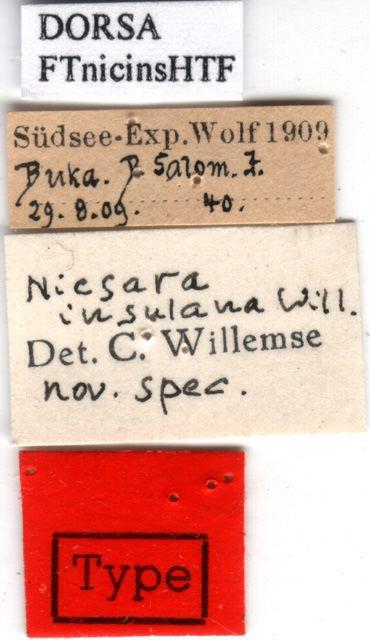 DORSA
FTnicinsHTF
Südsee-Exp. Wolf 1909
Buka. Salom. I.
29. 8. 09. 40.
Nicsara
insulana Will.
Det. C. Willemse
nov. spec.
Type